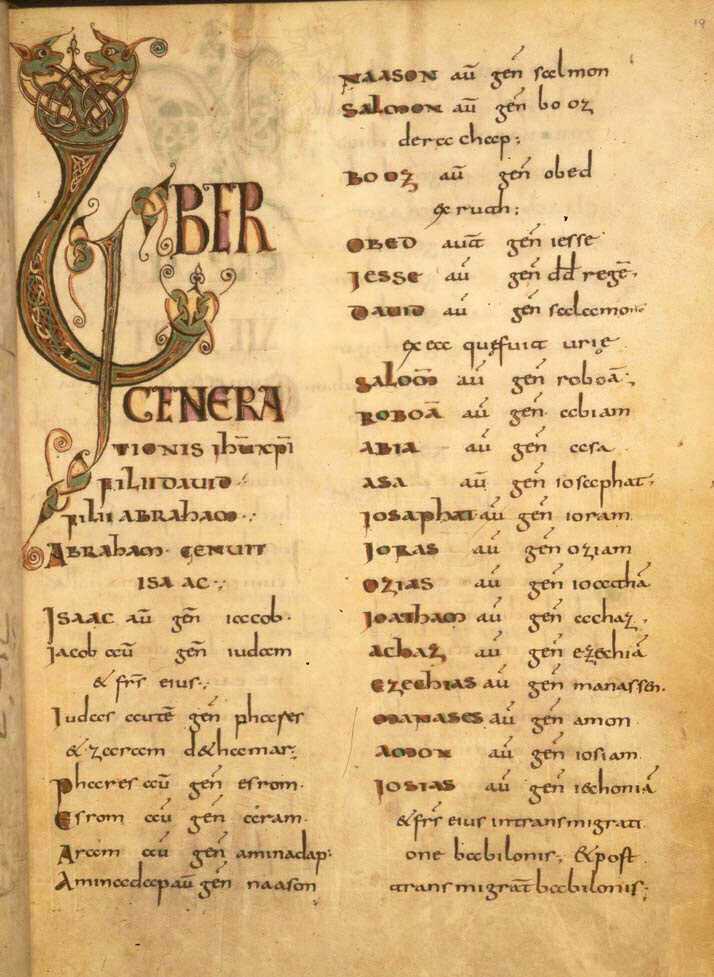 LIBER
GENERA
TIONIS ihū xpī
FILII DAUID·
FILII ABRAHAM·:
ABRAHAM· GENUIT
ISAAC·:
Isaac aū gēn iacob·
Iacob aū gēn iudam
& frs̄ eius·:
Iudas autē gēn phares
& zaram de thamar:
Phares aū gēn esrom·
Esrom aū gēn aram·
Aram aū gēn aminadap·
Aminadap aū gēn naason
NAASON aū gēn salmon
SALMON aū gēn booz
de rachap:
BOOZ aū gēn obed
ex ruth:
OBED aut̄ gēn iesse
IESSE aū gēn dd̄ regē·
DAUID aū gēn salamonē
ex ea que fuit urię
SALOM̄ aū gēn roboā·
ROBOĀ aū gēn abiam
ABIA aū gēn asa
ASA aū gēn iosaphat·
IOSAPHAT aū gēn ioram
IORAS aū gēn oziam
OZIAS aū gēn ioathā
IOATHAM aū gēn achaz
ACHAZ aū gēn ezechiā
EZECHIAS aū gēn manassen·
MANASES aū gēn amon
AMON aū gēn iosiam
IOSIAS aū gēn iechoniā
& frs̄ eius in transmigrati
one babilonis; & post
transmigrat̄ babilonis;
19